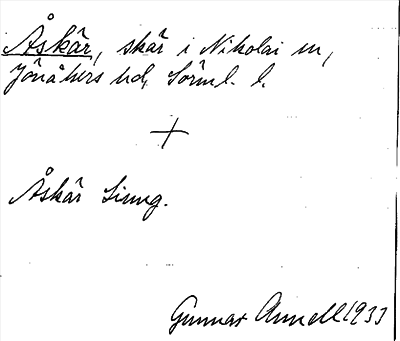 Åskär, skär i Nikolai sn,
Jönåkers hd, Sörml. l.
+
Åskär Limng.
Gunnar Annell 1933